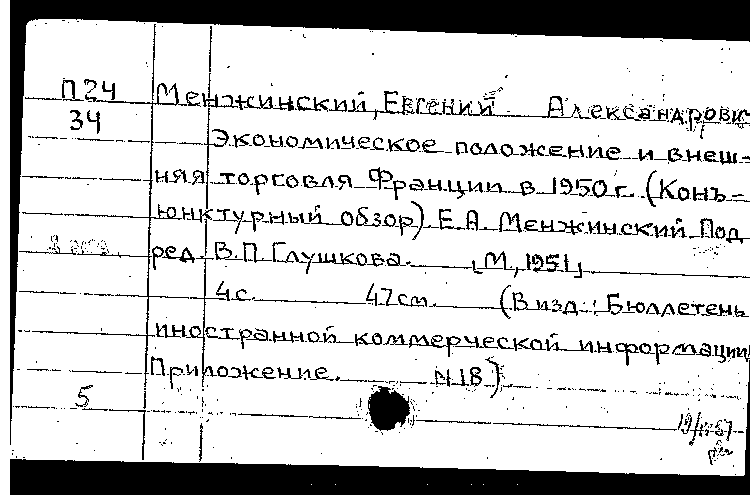 П24 Менжинский, Евгений Александрович
34 Экономическое положение и внеш-
няя торговля Франции в 1950 г. (Конъ-
юнктурный обзор). Е.А. Менжинский. Под
ред. В.П. Глушкова. [М., 1951]
4 с. 47 см. (В изд.: Бюллетень
иностранной коммерческой информации.
Приложение. №18).
5